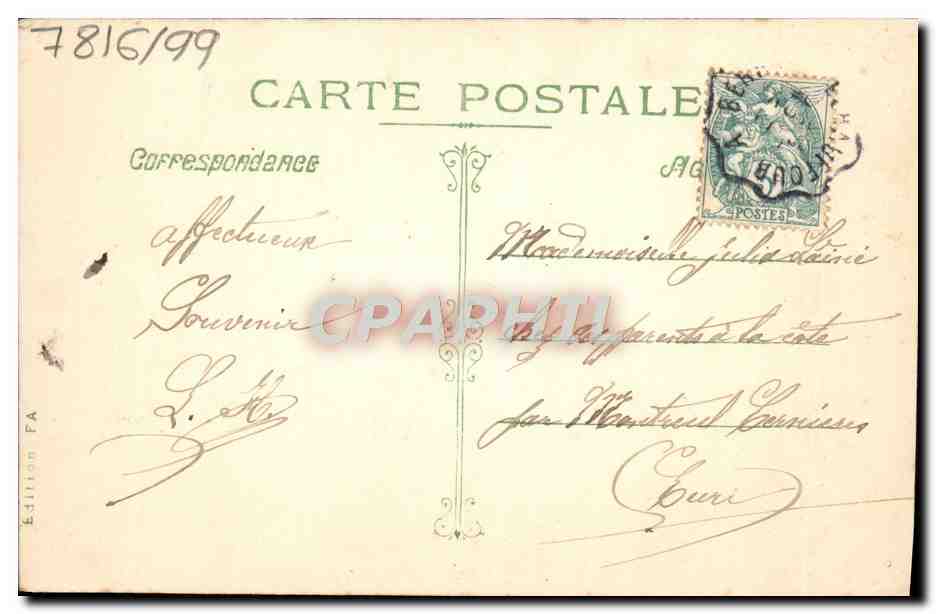 7816/99
CARTE POSTALE
Correspondance
POSTES
affectueux
Souvenir
L. H.
Mademoiselle Julia Lainé
chez ses parents à la côte
par Montreuil
Eure
CPAPHIL
Edition FA